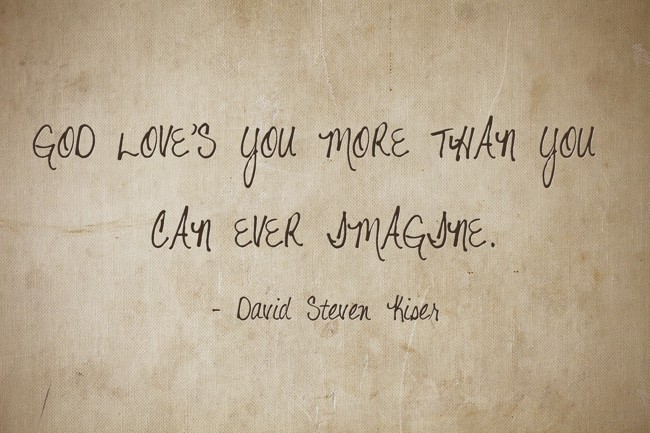 GOD LOVE'S YOU MORE THAN YOU
CAN EVER IMAGINE.
- David Steven Kiser